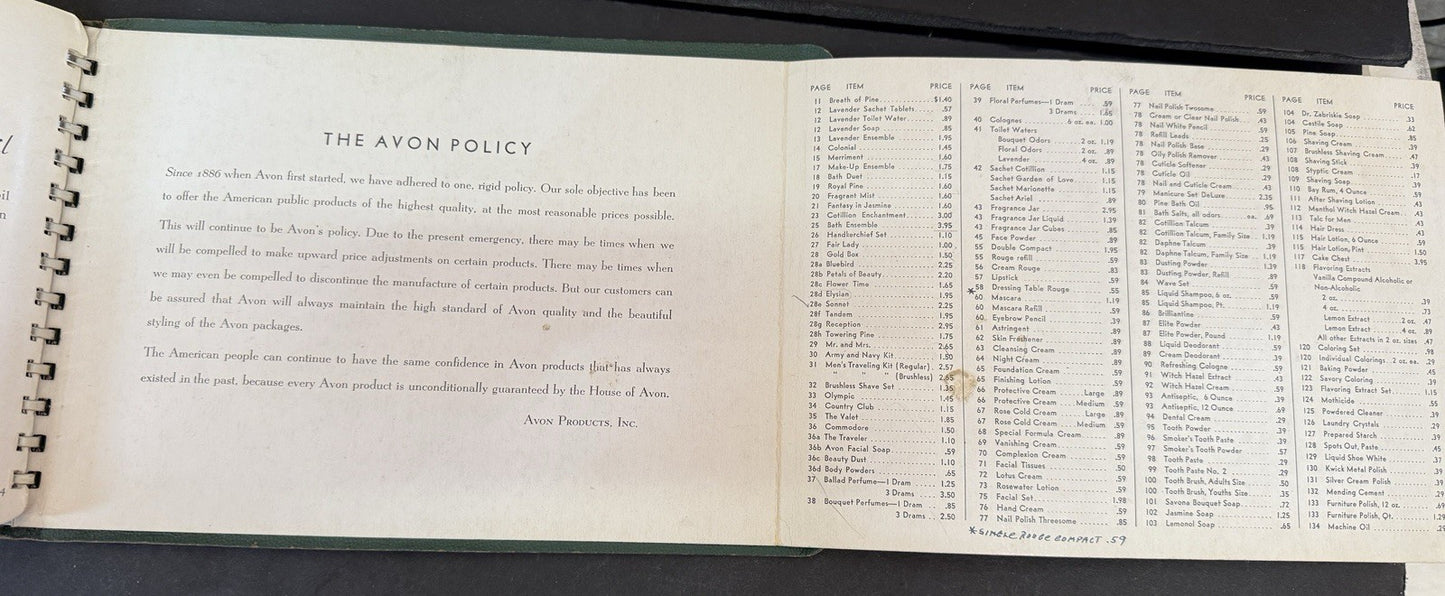 l
il
n
4
THE AVON POLICY
Since 1886 when Avon first started, we have adhered to one, rigid policy. Our sole objective has been
to offer the American public products of the highest quality, at the most reasonable prices possible.
This will continue to be Avon's policy. Due to the present emergency, there may be times when we
will be compelled to make upward price adjustments on certain products. There may be times when
we may even be compelled to discontinue the manufacture of certain products. But our customers can
be assured that Avon will always maintain the high standard of Avon quality and the beautiful
styling of the Avon packages.
The American people can continue to have the same confidence in Avon products that has always
existed in the past, because every Avon product is unconditionally guaranteed by the House of Avon.
Avon Products, Inc.
PAGE ITEM PRICE
11 Breath of Pine $1.40
12 Lavender Sachet Tablets .57
12 Lavender Toilet Water .89
12 Lavender Soap .85
13 Lavender Ensemble 1.95
14 Colonial 1.45
15 Merriment 1.60
17 Make-Up Ensemble 1.75
18 Bath Duet 1.15
19 Royal Pine 1.60
20 Fragrant Mist 1.60
21 Fantasy in Jasmine 1.60
23 Cotillion Enchantment 3.00
25 Bath Ensemble 3.95
26 Handkerchief Set 1.10
27 Fair Lady 1.00
28 Gold Box 1.50
28a Bluebird 2.25
28b Petals of Beauty 2.20
28c Flower Time 1.65
28d Elysian 1.95
28e Sonnet 2.25
28f Tandem 1.95
28g Reception 2.95
28h Towering Pine 1.75
29 Mr. and Mrs. 2.65
30 Army and Navy Kit 1.50
31 Men's Traveling Kit (Regular) 2.57
" " (Brushless) 2.65
32 Brushless Shave Set 1.35
33 Olympic 1.45
34 Country Club 1.15
35 The Valet 1.85
36 Commodore 1.50
36a The Traveler 1.10
36b Avon Facial Soap .59
36c Beauty Dust 1.10
36d Body Powders .65
37 Ballad Perfume—1 Dram 1.25
3 Drams 3.50
38 Bouquet Perfumes—1 Dram .85
3 Drams 2.50
PAGE ITEM PRICE
39 Floral Perfumes—1 Dram .59
3 Drams 1.65
40 Colognes 6 oz. ea. 1.00
41 Toilet Waters
Bouquet Odors 2 oz. 1.19
Floral Odors 2 oz. .89
Lavender 4 oz. .89
42 Sachet Cotillion 1.15
Sachet Garden of Love 1.15
Sachet Marionette 1.15
Sachet Ariel .89
43 Fragrance Jar 2.95
43 Fragrance Jar Liquid 1.39
43 Fragrance Jar Cubes .85
45 Face Powder .89
55 Double Compact 1.95
55 Rouge refill .59
56 Cream Rouge .83
57 Lipstick .59
*58 Dressing Table Rouge .55
60 Mascara 1.19
60 Mascara Refill .59
60 Eyebrow Pencil .39
61 Astringent .89
62 Skin Freshener .89
63 Cleansing Cream .89
64 Night Cream .89
65 Foundation Cream .89
65 Finishing Lotion .89
66 Protective Cream Large .89
66 Protective Cream Medium .59
67 Rose Cold Cream Large .89
67 Rose Cold Cream Medium .59
68 Special Formula Cream .89
69 Vanishing Cream .89
70 Complexion Cream .89
71 Facial Tissues .50
72 Lotus Cream .89
73 Rosewater Lotion .59
75 Facial Set 1.98
76 Hand Cream .59
77 Nail Polish Threesome .85
*SINGLE ROUGE COMPACT .59
PAGE ITEM PRICE
77 Nail Polish Twosome .59
78 Cream or Clear Nail Polish .43
78 Nail White Pencil .59
78 Refill Leads .25
78 Nail Polish Base .29
78 Oily Polish Remover .43
78 Cuticle Softener .29
78 Cuticle Oil .29
78 Nail and Cuticle Cream .43
79 Manicure Set DeLuxe 2.35
80 Pine Bath Oil .95
81 Bath Salts, all odors ea. .69
82 Cotillion Talcum .39
82 Cotillion Talcum, Family Size 1.19
82 Daphne Talcum .39
82 Daphne Talcum, Family Size 1.19
83 Dusting Powder 1.39
83 Dusting Powder, Refill .89
84 Wave Set .59
85 Liquid Shampoo, 6 oz. .59
85 Liquid Shampoo, Pt. 1.19
86 Brilliantine .59
87 Elite Powder .43
87 Elite Powder, Pound 1.19
88 Liquid Deodorant .59
89 Cream Deodorant .39
90 Refreshing Cologne .59
91 Witch Hazel Extract .43
92 Witch Hazel Cream .59
93 Antiseptic, 6 Ounce .39
93 Antiseptic, 12 Ounce .69
94 Dental Cream .29
95 Tooth Powder .39
96 Smoker's Tooth Paste .39
97 Smoker's Tooth Powder .57
98 Tooth Paste .29
99 Tooth Paste No. 2 .29
100 Tooth Brush, Adults Size .50
100 Tooth Brush, Youths Size .35
101 Savona Bouquet Soap .72
102 Jasmine Soap 1.25
103 Lemonol Soap .65
PAGE ITEM PRICE
104 Dr. Zabriskie Soap .33
104 Castile Soap .62
105 Pine Soap .85
106 Shaving Cream .39
107 Brushless Shaving Cream .47
108 Shaving Stick .39
108 Styptic Cream .17
109 Shaving Soap .39
110 Bay Rum, 4 Ounce .59
111 After Shaving Lotion .43
112 Menthol Witch Hazel Cream .43
113 Talc for Men .43
114 Hair Dress .43
115 Hair Lotion, 6 Ounce .59
115 Hair Lotion, Pint 1.50
117 Cake Chest 3.95
118 Flavoring Extracts
Vanilla Compound Alcoholic or
Non-Alcoholic
2 oz. .39
4 oz. .73
Lemon Extract 2 oz. .47
Lemon Extract 4 oz. .89
All other Extracts in 2 oz. sizes .47
120 Coloring Set .98
120 Individual Colorings 2 oz. ea. .29
121 Baking Powder .45
122 Savory Coloring .39
123 Flavoring Extract Set 1.15
124 Mothicide .55
125 Powdered Cleaner .39
126 Laundry Crystals .29
127 Prepared Starch .39
128 Spots Out, Paste .45
129 Liquid Shoe White .37
130 Kwick Metal Polish .39
131 Silver Cream Polish .39
132 Mending Cement .29
133 Furniture Polish, 12 oz. .69
133 Furniture Polish, Qt. 1.29
134 Machine Oil .29